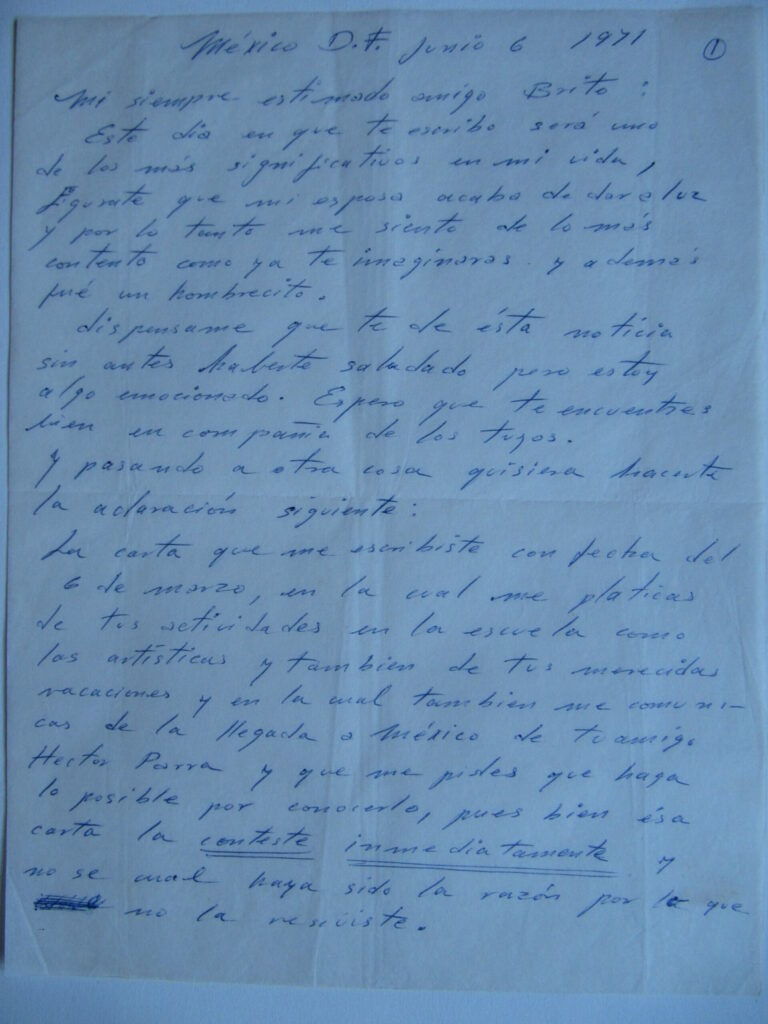 México D.F. Junio 6 1971 1
Mi siempre estimado amigo Brito:
Este dia en que te escribo será uno
de los más significativos en mi vida,
figurate que mi esposa acaba de dar a luz
y por lo tanto me siento de lo más
contento como ya te imaginaras. y además
fué un hombrecito.
dispensame que te de ésta noticia
sin antes haberte saludado pero estoy
algo emocionado. Espero que te encuentres
bien en compañia de los tuyos.
Y pasando a otra cosa quisiera hacerte
la aclaración siguiente:
La carta que me escribiste con fecha del
6 de marzo, en la cual me platicas
de tus actividades en la escuela como
las artísticas y tambien de tus merecidas
vacaciones y en la cual tambien me comuni-
cas de la llegada a México de tu amigo
Hector Parra y que me pides que haga
lo posible por conocerlo, pues bien ésa
carta la conteste inmediatamente y
no se cual haya sido la razón por la que
no la resiviste.